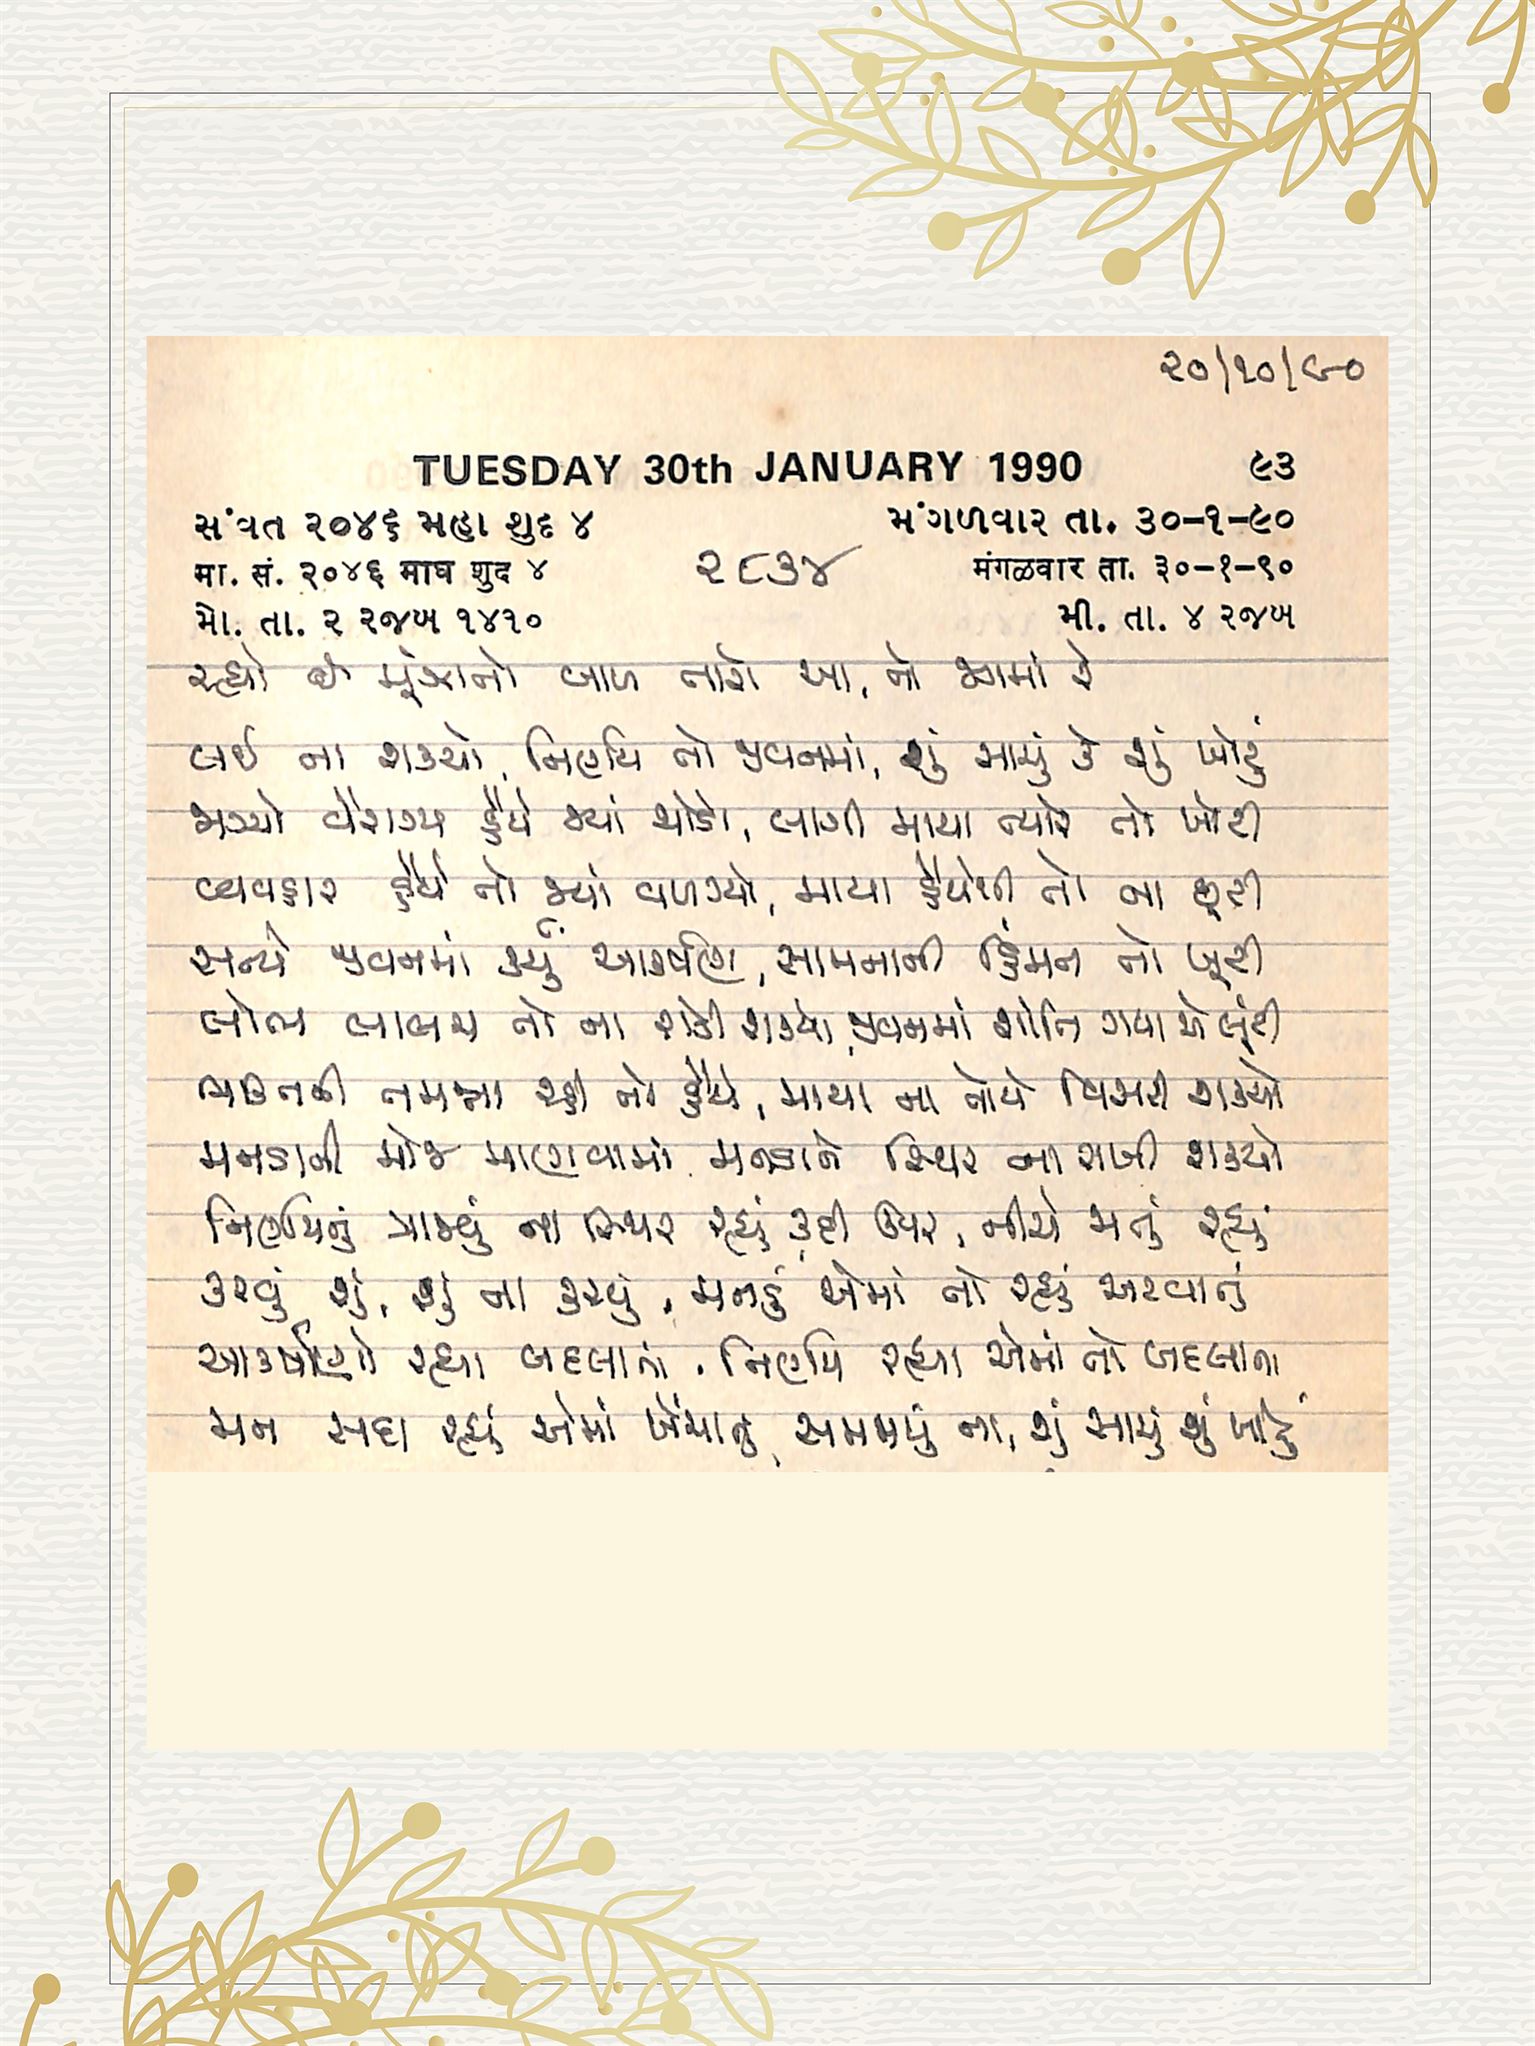 ૨૦/૧૦/૯૦
TUESDAY 30th JANUARY 1990 ૯૩
સંવત ૨૦૪૬ મહા શુદ ૪ મંગળવાર તા. ૩૦-૧-૯૦
मा. सं. २०४६ माघ शुद ४ ૨૮૩૪ मंगळवार ता. ३०-१-९०
મો. તા. ૨ રજબ ૧૪૧૦ મી. તા. ૪ રજબ
રહ્યો છે મૂંઝાતો બાળ તારો આ, તો જગમાં રે
લઈ ના શક્યો, નિર્ણય તો જીવનમાં, શું સાચું કે શું ખોટું
જાગ્યો વૈરાગ્ય હૈયે જ્યાં થોડો, લાગી માયા ત્યારે તો ખોટી
વ્યવહાર હૈયે તો જ્યાં વળગ્યો, માયા હૈયેથી તો ના છૂટી
સત્યે જીવનમાં કર્યું આકર્ષણ, સામનાની હિંમત તો ખૂટી
લોભ લાલચ તો ના રોકી શક્યો, જીવનમાં શાંતિ ગયા એ લૂંટી
ભક્તિની તમન્ના રહી તો હૈયે, માયા ના તોયે વિસરી શક્યો
મનડાની મોજ માણવામાં, મનડાને સ્થિર ના રાખી શક્યો
નિર્ણયનું ત્રાજવું ના સ્થિર રહ્યું, કદી ઉપર, નીચે થાતું રહ્યું
કરવું શું, શું ના કરવું, મનડું એમાં તો રહ્યું અટવાતું
આકર્ષણો રહ્યા બદલાતાં, નિર્ણય રહ્યા એમાં તો બદલાતા
મન સદા રહ્યું એમાં ખેંચાતું, સમજાયું ના, શું સાચું શું ખોટું